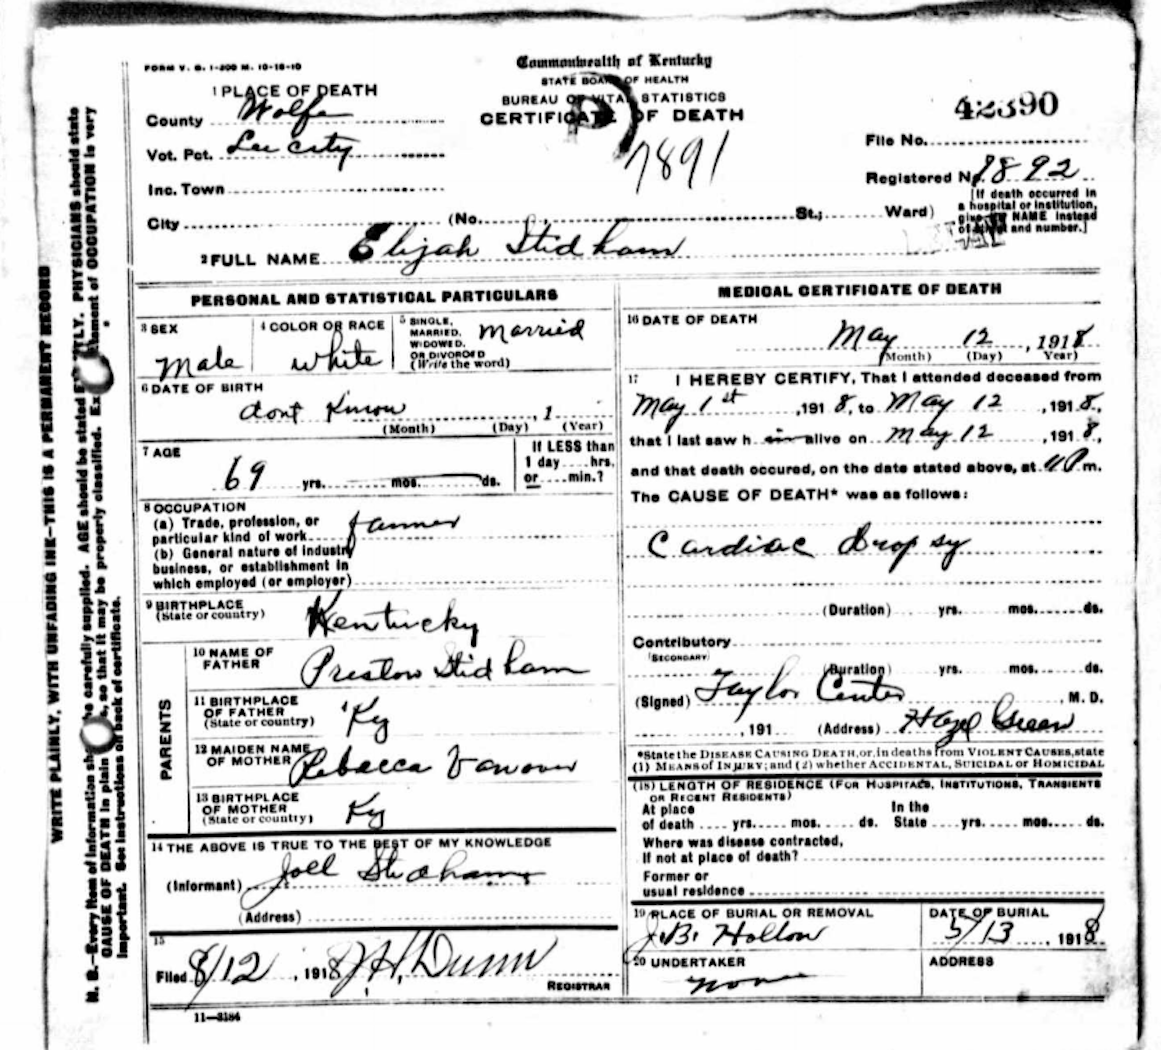 FORM V. S. 1-200 M. 10-18-10
Commonwealth of Kentucky
STATE BOARD OF HEALTH
BUREAU OF VITAL STATISTICS
CERTIFICATE OF DEATH
7891
42390
File No.
Registered No. 1892
[If death occurred in
a hospital or institution,
give its NAME instead
of street and number.]
1 PLACE OF DEATH
County Wolfe
Vot. Pct. Lee city
Inc. Town
City (No. , St.; Ward)
2 FULL NAME Elijah Stidham
PERSONAL AND STATISTICAL PARTICULARS
3 SEX
Male
4 COLOR OR RACE
white
5 SINGLE,
MARRIED,
WIDOWED,
OR DIVORCED
(Write the word)
Married
6 DATE OF BIRTH
dont Know , 1
(Month) (Day) (Year)
7 AGE
69 yrs. mos. ds.
If LESS than
1 day....hrs.
or....min.?
8 OCCUPATION
(a) Trade, profession, or
particular kind of work farmer
(b) General nature of industry
business, or establishment in
which employed (or employer)
9 BIRTHPLACE
(State or country)
Kentucky
PARENTS
10 NAME OF
FATHER
Preston Stidham
11 BIRTHPLACE
OF FATHER
(State or country)
Ky
12 MAIDEN NAME
OF MOTHER
Rebacca Vanover
13 BIRTHPLACE
OF MOTHER
(State or country)
Ky
14 THE ABOVE IS TRUE TO THE BEST OF MY KNOWLEDGE
(Informant) Joel Stidham
(Address)
15
Filed 8/12, 1918 J.H. Dunn
REGISTRAR
11—3184
MEDICAL CERTIFICATE OF DEATH
16 DATE OF DEATH
May 12, 1918
(Month) (Day) Year)
17 I HEREBY CERTIFY, That I attended deceased from
May 1st, 1918, to May 12, 1918,
that I last saw him alive on May 12, 1918,
and that death occured, on the date stated above, at 11 P m.
The CAUSE OF DEATH* was as follows:
Cardiac dropsy
(Duration) yrs. mos. ds.
Contributory
(SECONDARY)
(Duration) yrs. mos. ds.
(Signed) Taylor Center, M. D.
, 191 (Address) Hazel Green
*State the DISEASE CAUSING DEATH, or, in deaths from VIOLENT CAUSES, state
(1) MEANS of INJURY; and (2) whether ACCIDENTAL, SUICIDAL or HOMICIDAL
(18) LENGTH OF RESIDENCE (FOR HOSPITALS, INSTITUTIONS, TRANSIENTS
OR RECENT RESIDENTS)
At place In the
of death .... yrs. mos. ds. State ....yrs. mos. ds.
Where was disease contracted,
If not at place of death?
Former or
usual residence
19 PLACE OF BURIAL OR REMOVAL
J.B. Hollow
DATE OF BURIAL
5/13, 1918
20 UNDERTAKER
none
ADDRESS
WRITE PLAINLY, WITH UNFADING INK—THIS IS A PERMANENT RECORD
N. B.—Every item of information should be carefully supplied. AGE should be stated EXACTLY. PHYSICIANS should state
CAUSE OF DEATH in plain terms, so that it may be properly classified. Exact statement of OCCUPATION is very
important. See instructions on back of certificate.